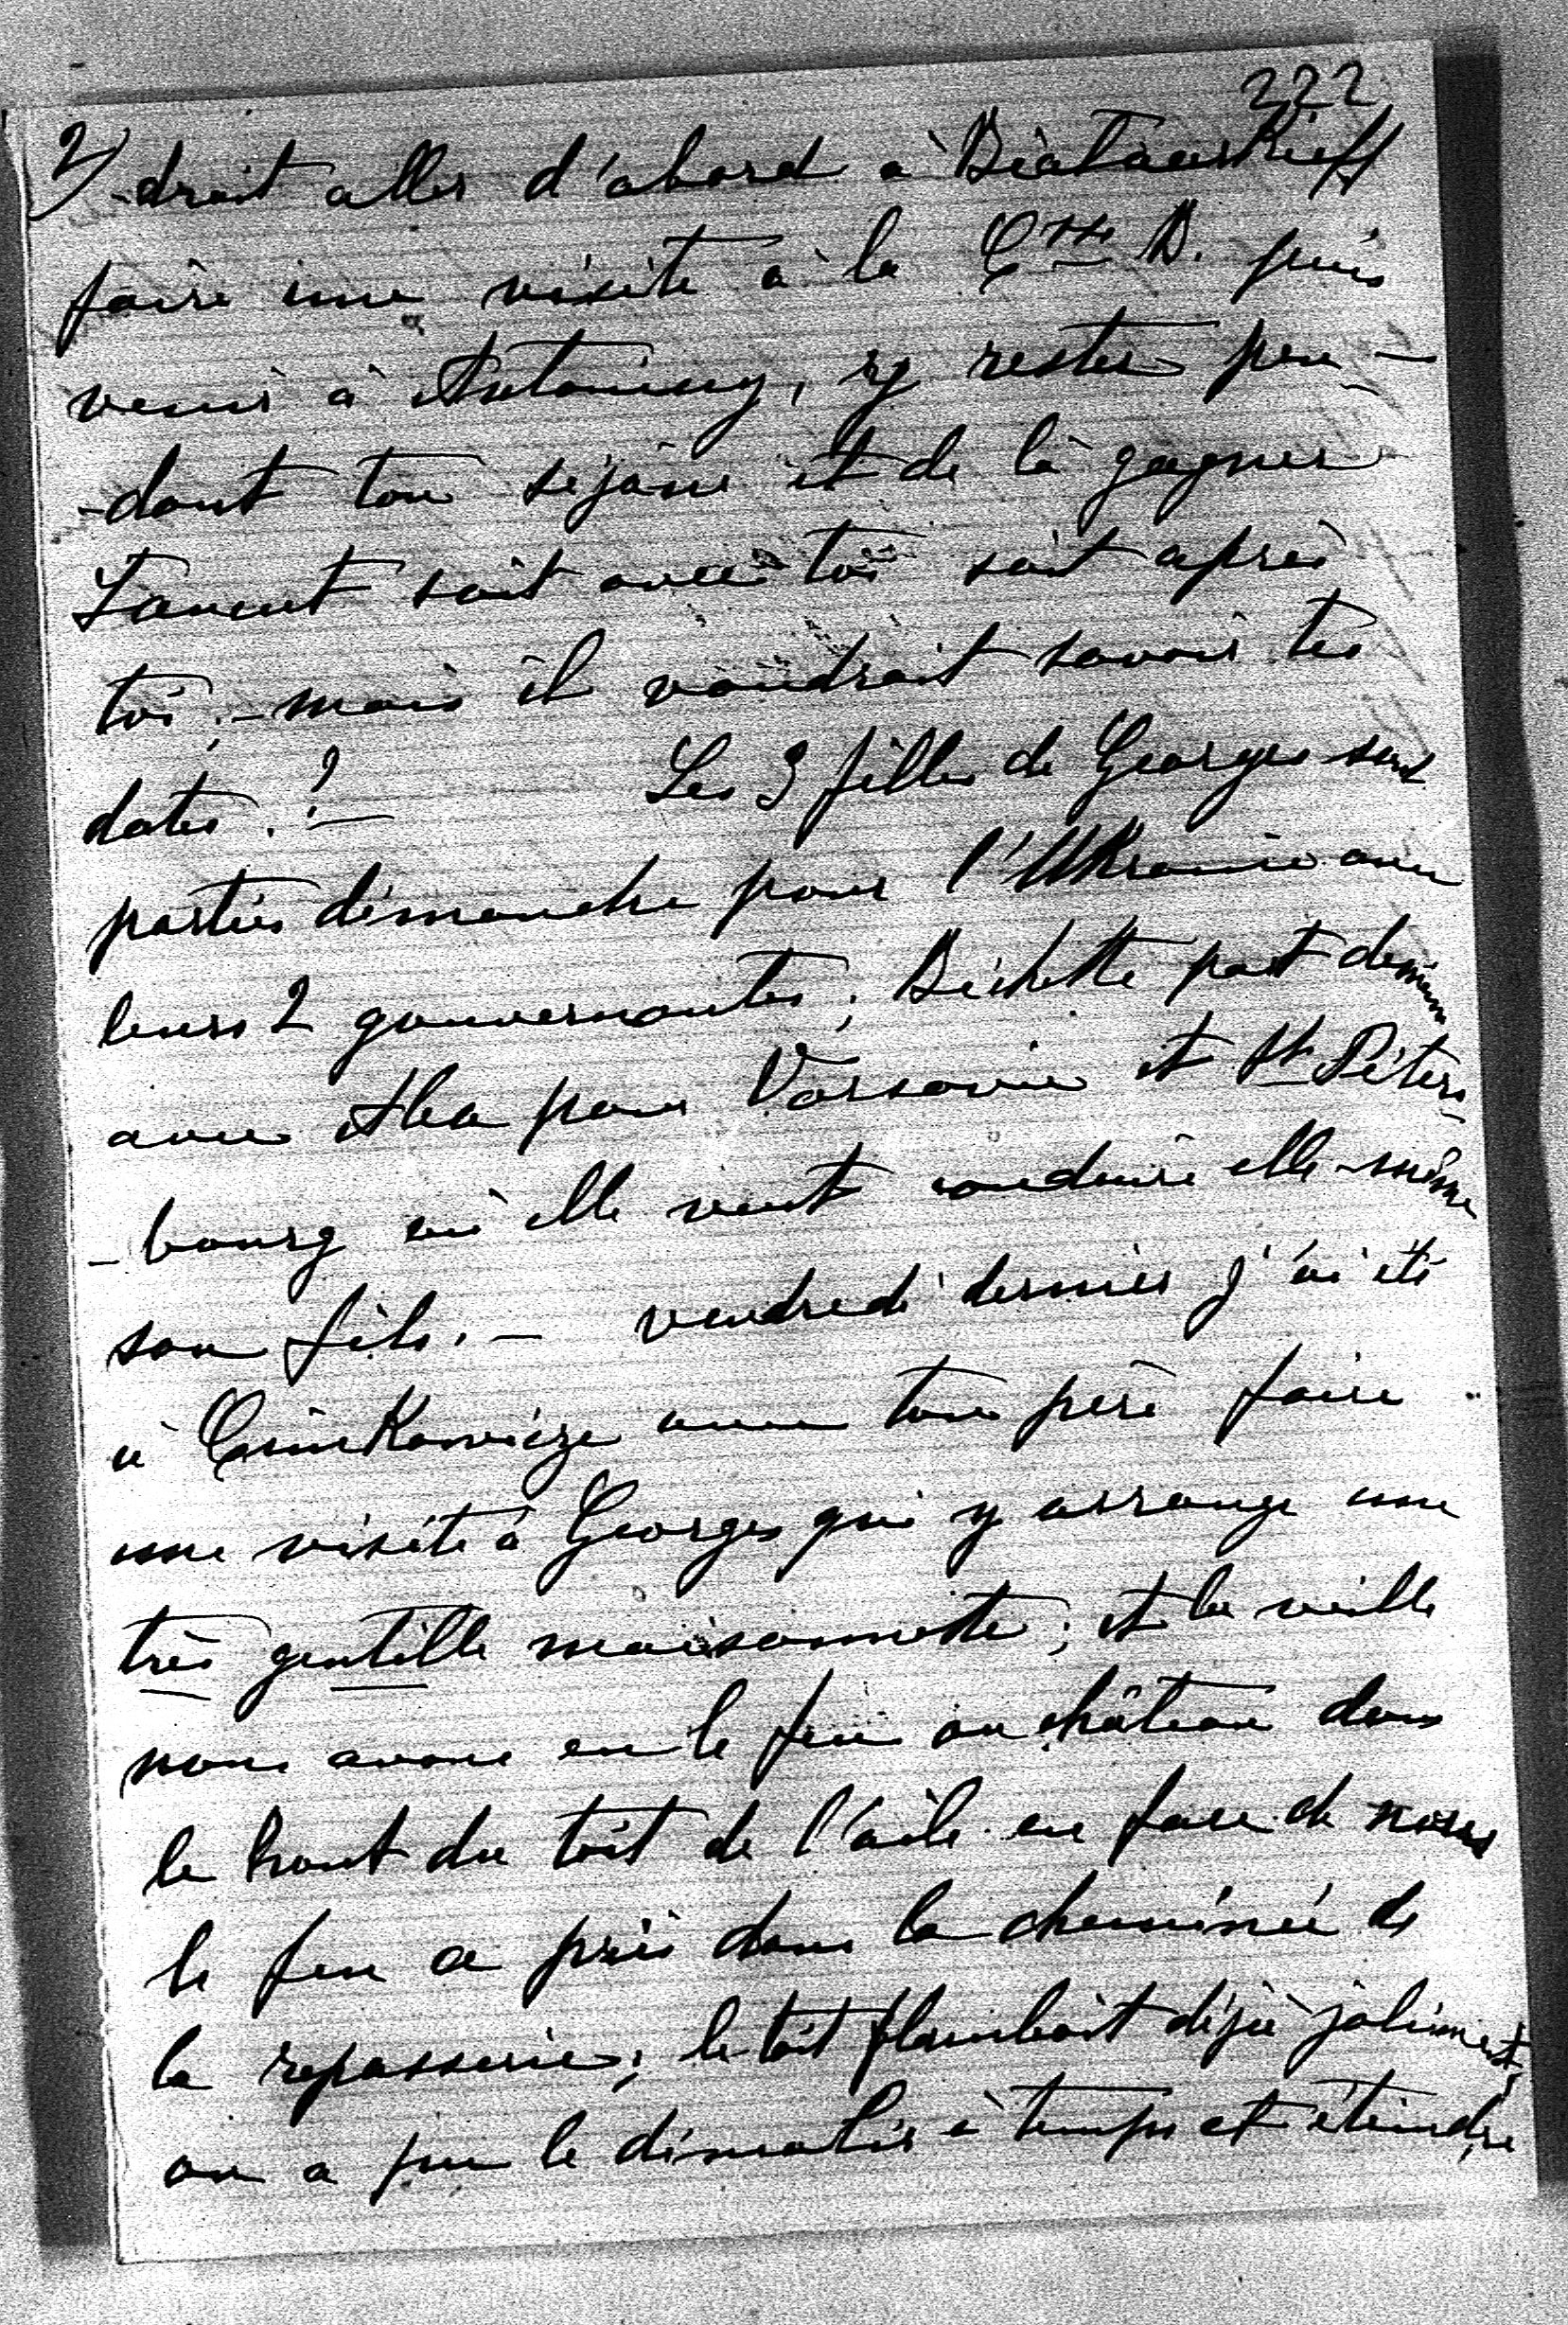 222
2/ -drait aller d'abord à
faire une visite à la Ctsse B. puis
venir à Antoniny, y rester pen-
-dant ton séjour et de là gagner
Łancut soit avec toi soit après
toi, - mais il voudrait savoir tes
dates. ? - Les 3 filles de Georges sont
parties dimanche pour l'Ukraine avec
leurs 2 gouvernantes; Bichette part demain
avec Aba pour Varsovie et St Péters-
-bourg où elle veut conduire elle-même
son fils. - vendredi dernier j'ai été
à avec ton père faire
une visite à Georges qui y arrange une
très gentille maisonnette; et la veille
nous avons eu le feu au château dans
le haut du toit de l'aile en face de nous
le feu a pris dans la cheminée de
la repasserie; le toit flambait déjà joliment,
on a pu le démolir à temps et éteindre